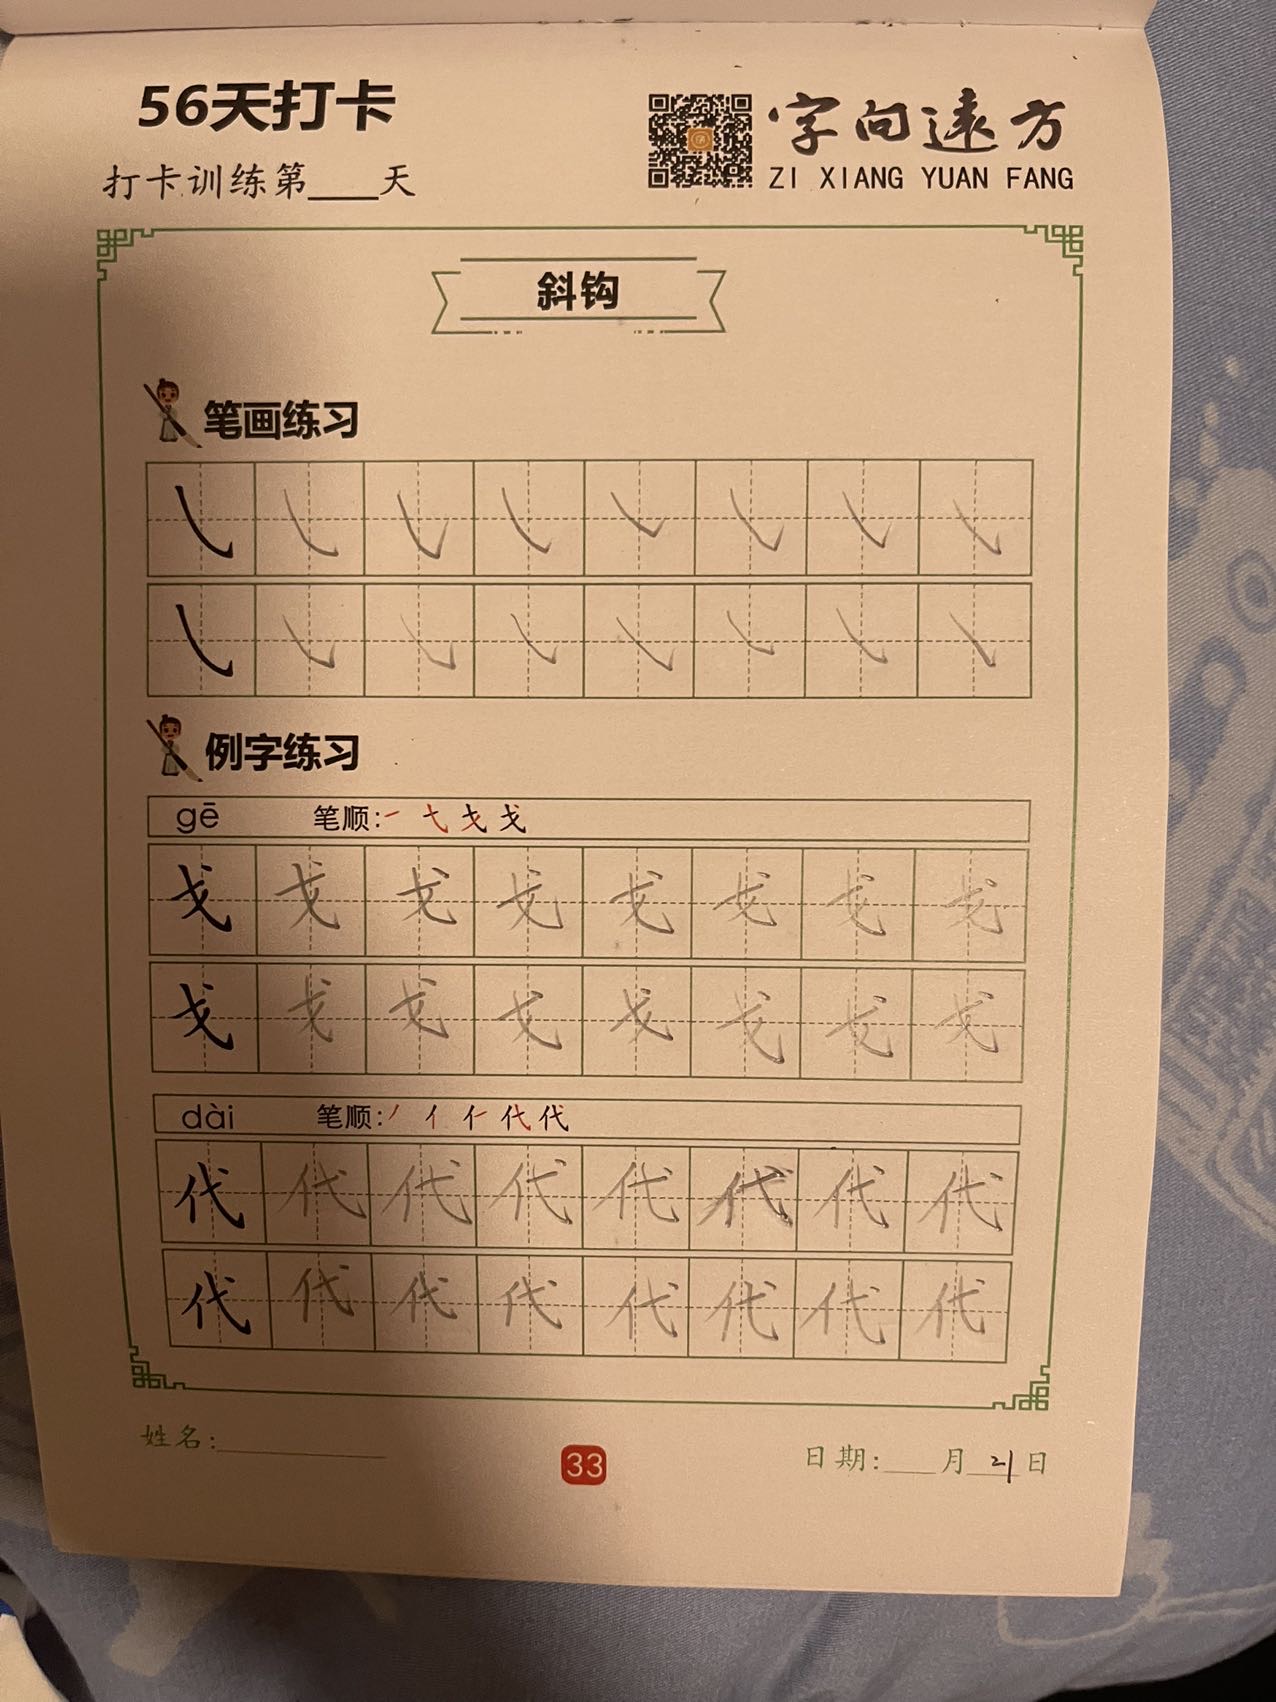 56天打卡
打卡训练第___天
字向遠方
ZI XIANG YUAN FANG
斜钩
笔画练习
例字练习
gē 笔顺:
戈 戈 戈 戈 戈 戈 戈 戈
戈 戈 戈 戈 戈 戈 戈 戈
dài 笔顺:
代 代 代 代 代 代 代 代
代 代 代 代 代 代 代 代
姓名:
33
日期:___月21日